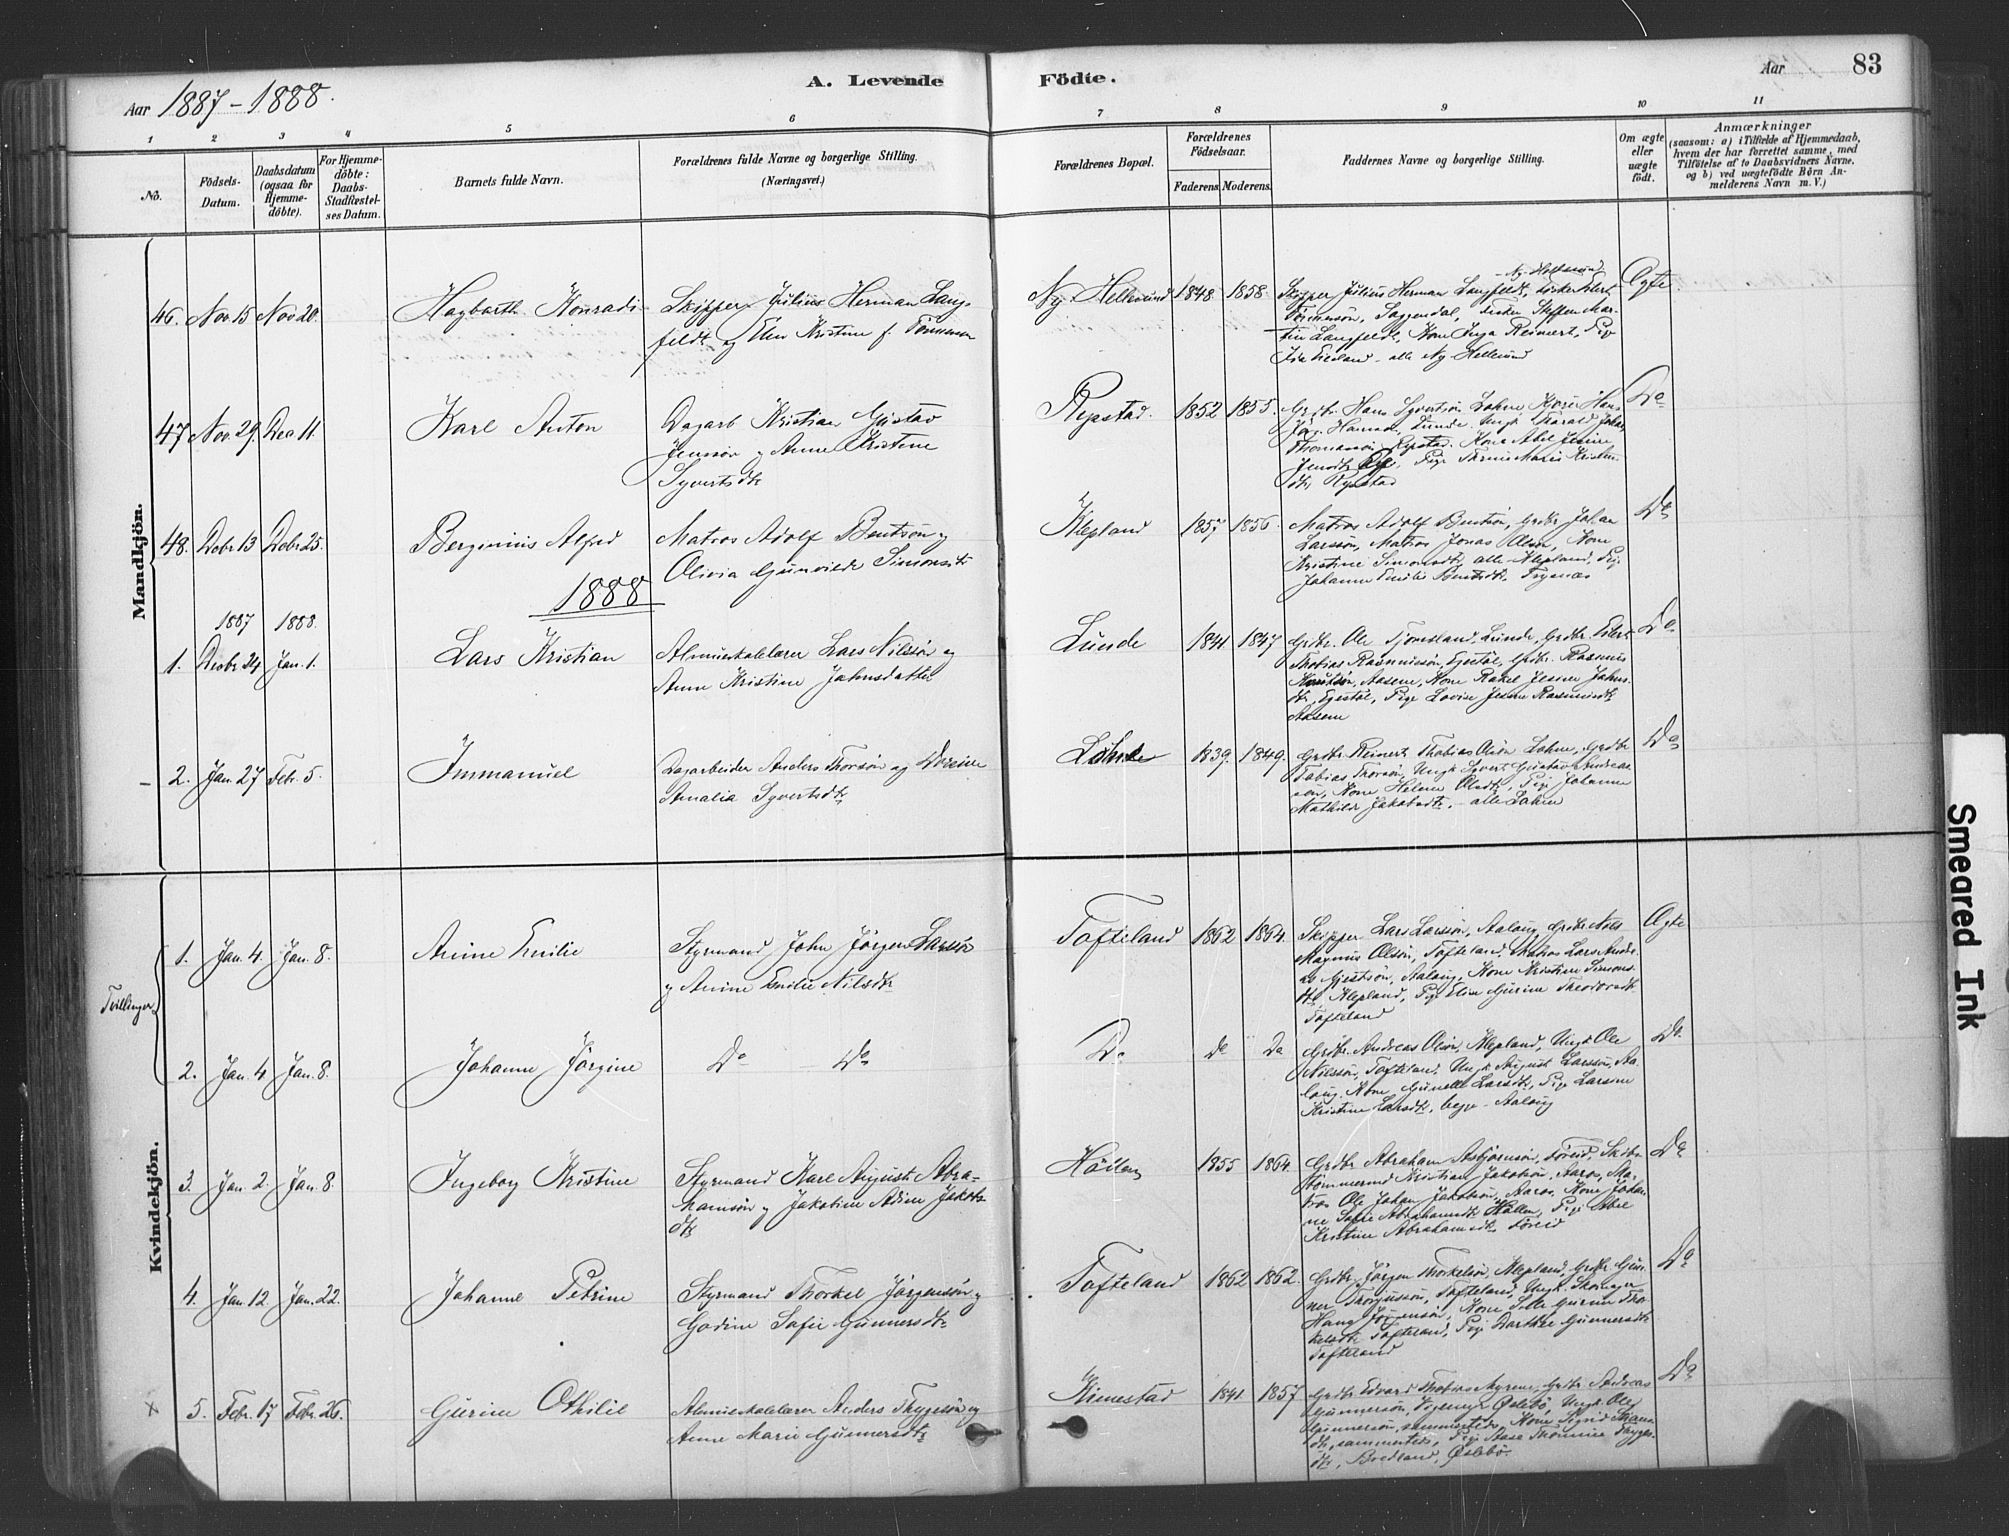 Aar 1887-1888.
A. Levende Födte.
Aar
83
1 2 3 4 5 6 7 8 9 10 11
No.
Födsels-Datum.
Daabsdatum (ogsaa for Hjemmedöbte).
For Hjemmedöbte: Daabs-Stadfæstelses Datum.
Barnets fulde Navn.
Forældrenes fulde Navne og borgerlige Stilling. (Næringsvei.)
Forældrenes Bopæl.
Forældrenes Födselsaar.
Faderens. Moderens.
Faddernes Navne og borgerlige Stilling.
Om ægte eller uægte födt.
Anmærkninger
(saasom: a) i Tilfælde af Hjemmedaab, hvem der har forrettet samme, med Tilföielse af to Daabsvidners Navne. og b) ved uægtefödte Börn Anmelderens Navn m. V.)
Mandkjön.
46. Nov. 15 Nov 20. Hagbarth Konradi Skipper Julius Herman Lang-
feldt og Elen Kristine f. Tönnesen
Ny Hellesund 1848 1858. Skipper Julius Herman Langfeldt, - Ny Hellesund
Saggendal, Fisker Steffen Mar-
tin Langfeldt, Kone Inga Reinert, Pige
Ida - alle Ny Hellesund
Ægte
47 Nov. 29. Dec. 11. Karl Anton Dagarb Kristian Gustav
Jenssön og Anne Kristine
Syvertsdtr
Repstad. 1852 1855. Grdbr. Hans Syvertsön Lohne, Kone
Lunde, Ungk Harald
Thomassön Repstad. Kone Abel Jesine
Jensdtr Pige Kristen-
dtr, Repstad
Do
48. Decbr 13 Decbr 25. Berginius Alfred Matros Adolf Bentsön og
Olivia Gunvilde Simonsdtr
Klepland 1857 1856. Matros Adolf Bentsön, Grdbr Johan
Larssön, Matros Jonas Olsen, Kone
Kristine Simonsdtr, alle Klepland, Pige
Johanne Emilie Bentsdtr,
Do
1888
1887 1888.
1. Decbr 24 Jan. 1. Lars Kristian Almueskolelærer Lars Nilssön og
Anne Kristine Jahnsdatter
Lunde 1841 1847 Grdbr. Ole Tjomsland, Lunde, Grdbr. Eilert
Thobias Rasmussön, Egestöl, Grdbr. Rasmus
Knutsön, Aasene, Kone Rakel Jesine Jahns-
dtr, Egestöl, Pige Lovise Jesine Rasmusdtr
Aasene
Do
2. Jan. 27 Febr. 5. Immanuel Dagarbeider Anders Thorsön og Dorine
Amalia Syvertsdtr
Lohne 1839. 1849. Grdbr. Reinert Thobias Olsön Lohne, Grdbr
Tobias Thorsön, Ungk Syvert Gustav Andreas-
sön, Kone Helene Olsdtr, Pige Johanne
Mathilde Jakobsdtr. - alle Lohne
Do
Kvindekjön.
Tvillinger
1. Jan. 4. Jan. 8. Anine Emilie Styrmand John Jörgen Larssön
og Anine Emilie Nilsdtr
Tofteland 1862 1864. Skipper Lars Larssön, Aaloug, Grdbr Nils
Magnus Olsön, Tofteland, Matros Lars Andre-
as Gjertsön, Aaloug, Kone Kristine Simons-
dtr, Klepland, Pige Elise Gurine Theodorsdtr
Tofteland
Ægte
2. Jan. 4 Jan. 8. Johanne Jörgine Do Do
Do Do Do Grdbr. Andreas Olsön, Klepland, Ungk Ole
Nilssön, Tofteland, Ungk August Larssön, Aa-
loug, Kone Gunelle Larsdtr, Pige Larsine
Kristine Larsdtr, begge - Aaloug
Do.
3. Jan 2. Jan. 8. Ingeborg Kristine Styrmand Karl August Abra-
hamsön og Jakobine Adine Jakobs-
dtr
Höllen 1855 1864. Grdbr Abraham Asbjörnsön, Skibs-
tömmermd Kristian Jakobsön, Aaros, Ma-
tros Ole Johan Jakobsön, Aaros, Kone Johan-
ne Sofie Abrahamsdtr Höllen, Pige Abel
Kristine Abrahamsdtr,
Do
4. Jan. 12. Jan. 22. Johanne Petrine Styrmand Thorkel Jörgensön og
Gadine Sofie Gunnersdtr
Tofteland 1862 1862. Grdbr. Jörgen Thorkelsön, Klepland, Grdbr Gun-
ner Tofteland, Ungk. Skomager
Hans Jörgensön, Kone Gurine Thor-
kelsdtr Tofteland, Pige Dorthea Gunnersdtr
Tofteland
Do
5. Febr. 17 Febr. 26. Gurine Othilie Almueskolelærer Anders Thygesön og
Anne Marie Gunnersdtr
Kimestad 1841. 1857 Grdbr Edvard Thobias Grdbr Andreas
Gunnersön, Öslebö, Ungk Ole
Gunnersön, sammesteds, Kone Sigrid
dtr, sammesteds, Pige Aase Thomine Thyges-
dtr, Bredland, Öslebö.
Do
Smeared Ink